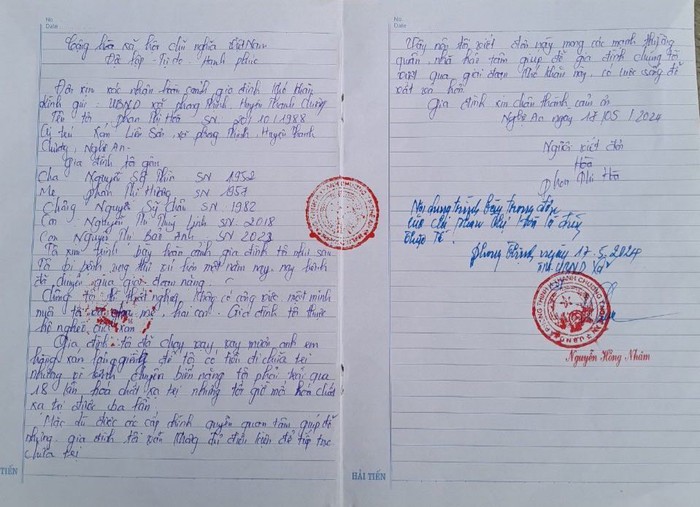 No
Date
Cộng hòa xã hội chủ nghĩa Việt Nam
Độc lập - Tự do - Hạnh phúc
Đơn xin xác nhận hoàn cảnh gia đình khó khăn
Kính gửi: UBND xã phong thịnh, Huyện Thanh Chương
Tên tôi phan Thị Hòa SN 20/10/1988
trú tại Xóm Liên Sơn, xã phong thịnh, Huyện Thanh
Chương, Nghệ An
Gia đình tôi gồm
Cha Nguyễn Sỹ SN 1952
Mẹ phan Thị SN 1957
Chồng Nguyễn Sỹ SN 1982
Con Nguyễn Thị Thùy Linh SN 2018
Con Nguyễn Thị Bảo Anh SN 2023
Tôi xin trình bày hoàn cảnh gia đình tôi như sau
Tôi bị bệnh ung thư hơn một năm nay, nay bệnh
đã chuyển qua giai đoạn nặng.
Chồng tôi thì thất nghiệp, không có công việc một mình
nuôi tôi cha mẹ hai con. Gia đình tôi thuộc
hộ nghèo của xóm
Gia đình tôi đã chạy vay vay mượn anh em
hàng xóm láng giềng để tôi có tiền đi chữa trị
nhưng vì bệnh chuyển biến nặng tôi phải trải qua
18 lần hoá chất xạ trị nhưng tới giờ mà hóa chất
xạ trị được ba lần
Mặc dù được các cấp chính quyền quan tâm giúp đỡ
nhưng gia đình tôi vẫn không đủ điều kiện để tiếp tục
chữa trị
TIẾN
No
Date
Vậy nên tôi viết đơn này mong các mạnh thường
quân, nhà hảo tâm giúp đỡ gia đình chúng tôi
vượt qua giai đoạn khó khăn này, có cuộc sống đỡ
vất vả hơn
Gia đình xin chân thành cảm ơn
Nghệ An ngày 17/05/2024
Người viết đơn
Hòa
Phan Thị Hòa
Nội dung trình bày trong đơn
của chị phan thị Hòa là đúng
thực tế.
Phong Thịnh, ngày 17.5.2024
TM UBND xã
Nguyễn Hồng Nhâm
HẢI TIẾN